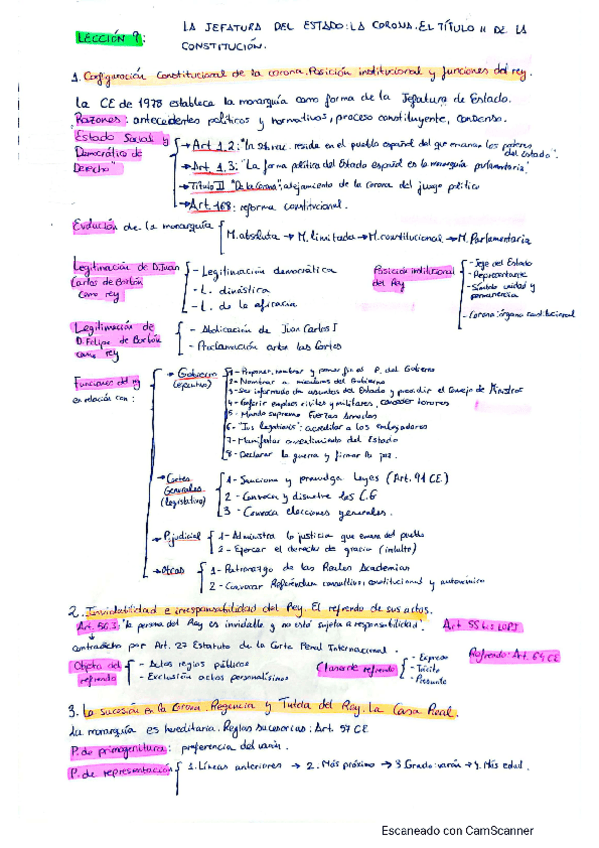 LECCIÓN 9: LA JEFATURA DEL ESTADO: LA CORONA. EL TÍTULO II DE LA
CONSTITUCIÓN.
1. Configuración Constitucional de la corona. Posición institucional y funciones del rey.
La CE de 1978 establece la monarquía como forma de la Jefatura de Estado.
Razones: antecedentes políticos y normativos, proceso constituyente, consenso.
Estado Social y
Democrático de
Derecho"
→ Art 1.2: "la reside en el pueblo español del que emanan los poderes
del Estado".
→ Art 1.3: "La forma política del Estado español es la monarquía parlamentaria".
→ Título II "De la Corona"; alejamiento de la corona del juego político
→ Art. 168: reforma constitucional.
Evolución de la monarquía { M. absoluta → M. limitada → M. constitucional → M. Parlamentaria
Legitimación de D. Juan
Carlos de Borbón
como rey
- Legitimación democrática
- L. dinástica
- L. de la eficacia
Posición institucional
del Rey
- Jefe del Estado
- Representante
- Símbolo unidad y
permanencia
- Corona: órgano constitucional
Legitimación de
D. Felipe de Borbón
como rey
- Abdicación de Juan Carlos I
- Proclamación ante las Cortes
Funciones del rey
en relación con:
→ Gobierno
(ejecutivo)
1 - Proponer, nombrar y poner fin al P. del Gobierno
2 - Nombrar a miembros del Gobierno
3 - Ser informado de asuntos del Estado y presidir el Consejo de Ministros
4 - Conferir empleos civiles y militares, conceder honores
5 - Mando supremo Fuerzas Armadas
6 - "Ius legationis": acreditar a los embajadores
7 - Manifestar consentimiento del Estado
8 - Declarar la guerra y firmar la paz.
→ Cortes
Generales
(legislativo)
1 - Sanciona y promulga leyes (Art. 91 CE)
2 - Convoca y disuelve las C.G
3 - Convoca elecciones generales.
→ P. judicial
1 - Administra la justicia que emana del pueblo
2 - Ejercer el derecho de gracia (indulto)
→ Otras
1 - Patronazgo de las Reales Academias
2 - Convocar Referéndum consultivo, constitucional y autonómico
2. Inviolabilidad e irresponsabilidad del Rey. El refrendo de sus actos.
Art. 56.3: "la persona del Rey es inviolable y no está sujeta a responsabilidad". Art 55 bis LOPJ
contradicho por Art. 27 Estatuto de la Corte Penal Internacional.
Refrendo: Art. 64 CE
Objeto del
refrendo
- Actos regios públicos
- Exclusión actos personalísimos
Clases de refrendo
- Expreso
- Tácito
- Presunto
3. La sucesión en la Corona. Regencia y Tutela del Rey. La Casa Real.
La monarquía es hereditaria. Reglas sucesorias: Art. 57 CE
P. de primogenitura: preferencia del varón.
P. de representación { 1. Líneas anteriores → 2. Más próximo → 3. Grado: varón → 4. Más edad.
Escaneado con CamScanner